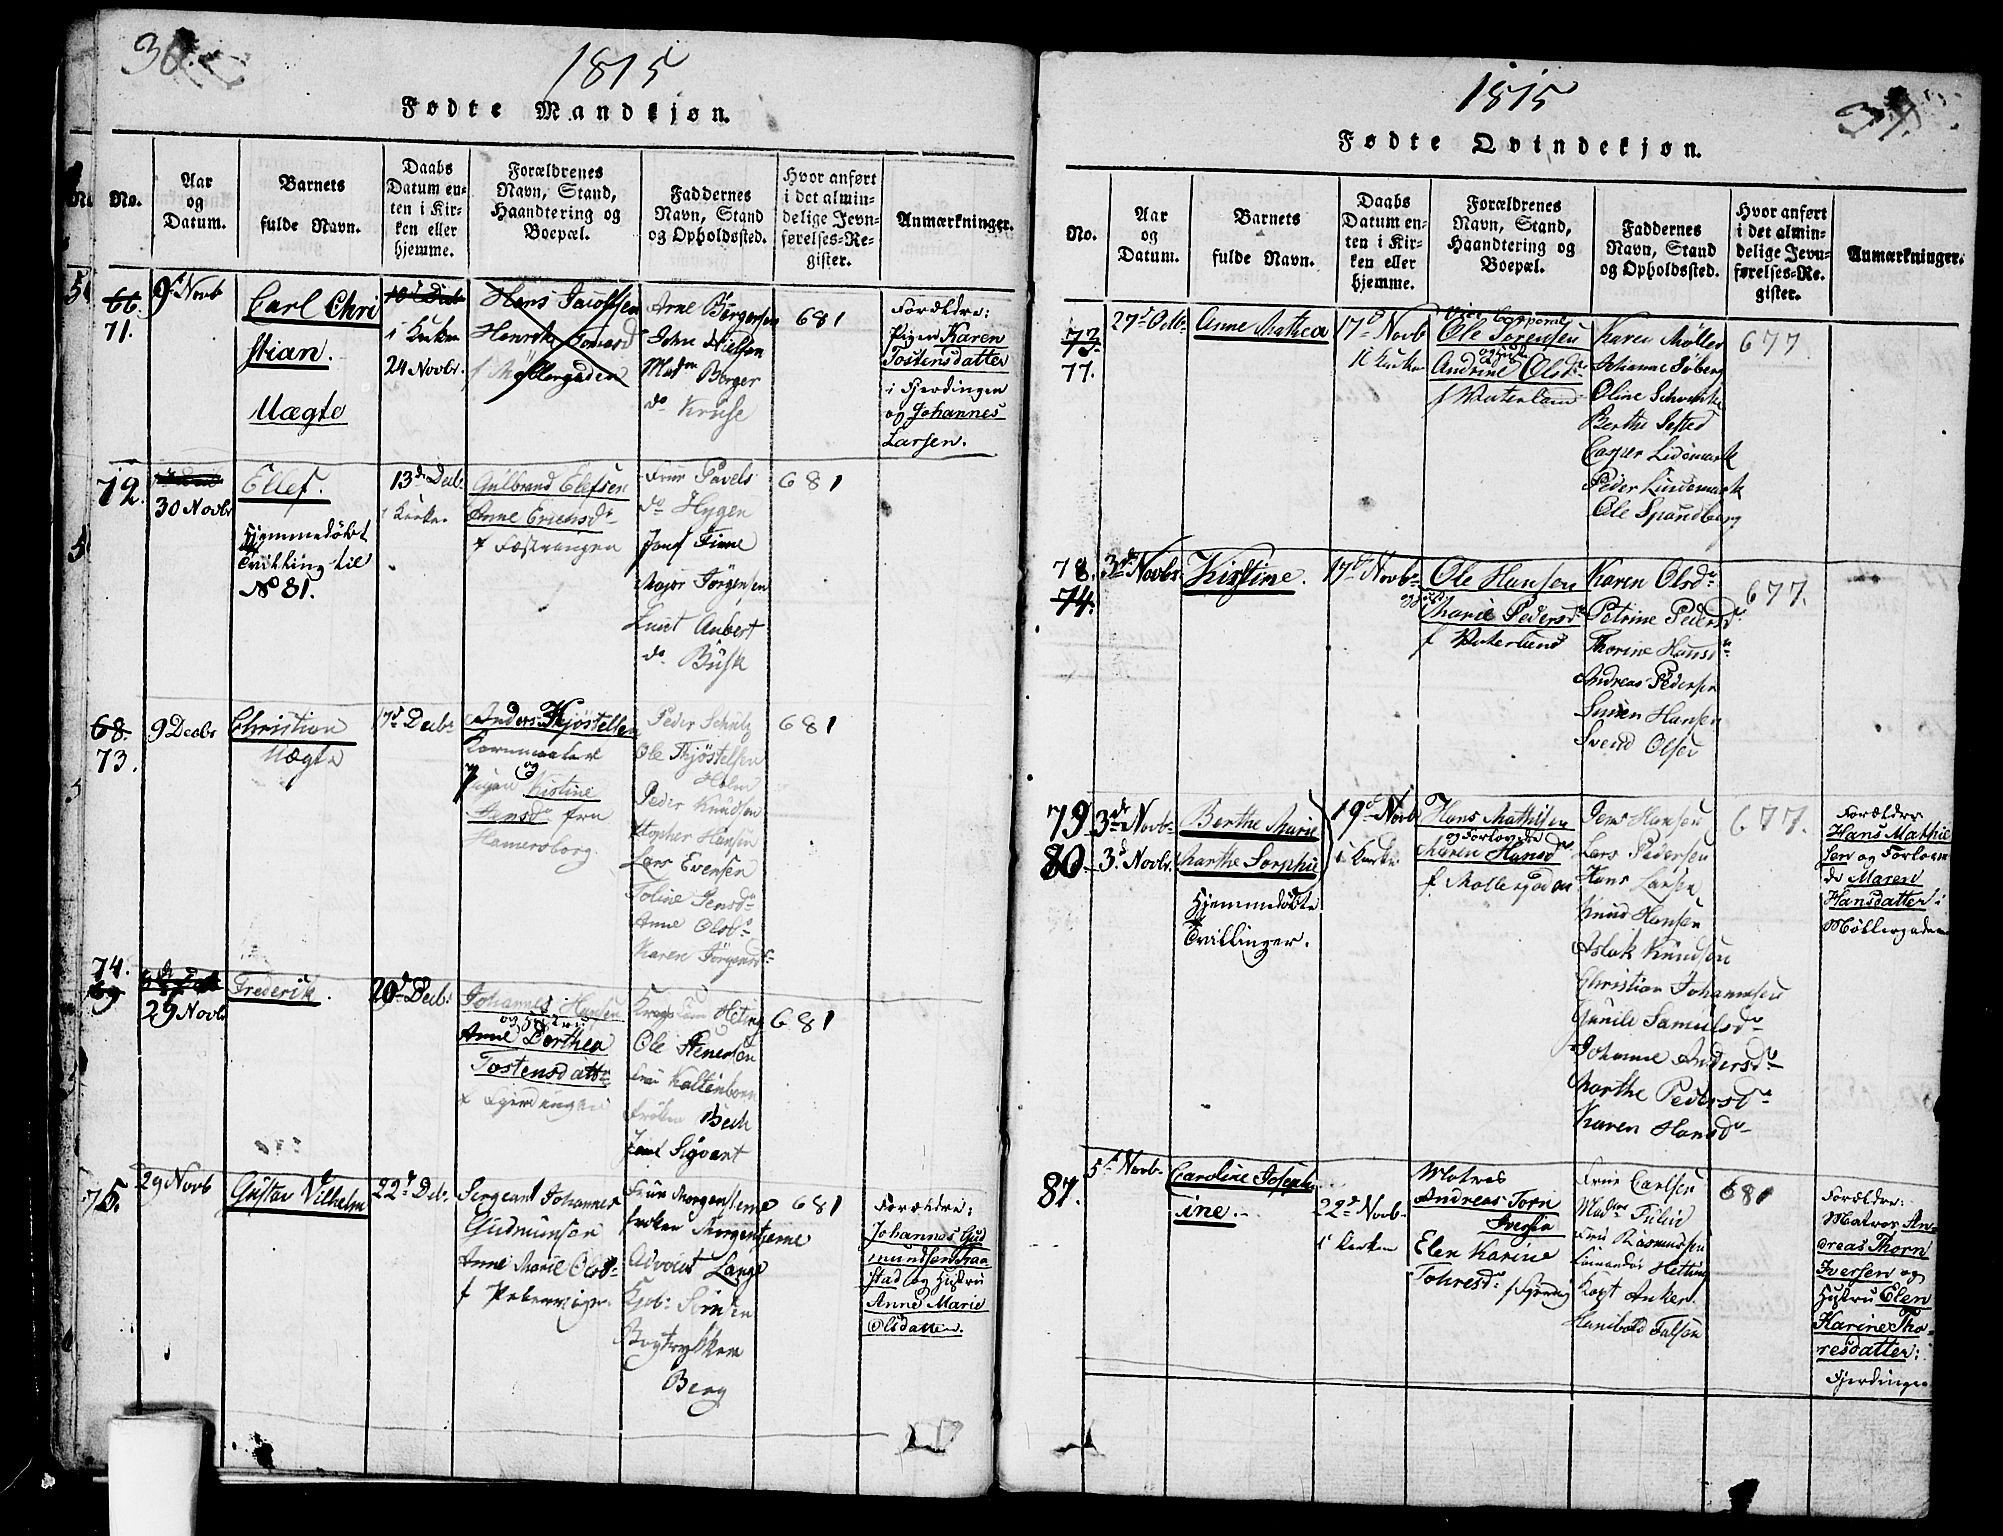 30.
1815
Fødte Mandkjøn.
No.
Aar og Datum.
Barnets fulde Navn.
Daabs Datum enten i Kirken eller hjemme.
Forældrenes Navn, Stand, Haandtering og Boepæl.
Faddernes Navn, Stand og Opholdssted.
Hvor anført i det almindelige Jevnførelses-Register.
Anmærkninger.
66
71.
9d Novb
Carl Chri
stian.
Uægte
10d Decb
i Kirken
24 Novbr.
Hans Jacobsen
Henrik
f Møllergaden
Arne Børgersen
John Nielsen
Madm Berger
do Kruse
681
Forældre:
Pigen Karen
Tostensdatter
i Fjerdingen
og Johannes
Larsen.
72.
30 Novbr
Ellef.
Hjemmedøbt
Tvilling til
No 81.
13de Decb.
i Kirken
Gulbrand Elefsen
Anne Erichsd
f Fæstningen
Frue Pavels
do Hygen
Jomf Finne
Major Jørgensen
Lieut Aubert
do Büsk
681
68
73.
9 Decbr
Christian
Uægte
17d Decbr
Anders Kjøstelsen
og
Pigen Kistine
Jensd fra
Hamersborg.
Peder Schulz
Ole Kjøstelsen
Holm
Peder Knudsen
Stopher Hansen
Lars Evensen
Toline Jensd
Anne Olsd
Karen Jørgensd
681
74.
69
29 Novb
Frederik.
20d Decb.
Johannes Hansen
og Hustru
Anne Dorthea
Tostensdatter
f Fjerdingen
Heting
Ole Stenersen
Frue Kaltenborn
Frøken Bech
Jomf Sigvart
681
75.
29 Novb
Gustav Vilhelm
22d Deb.
Sergeant Johannes
Gudmunsen
Anne Marie Olsd
f Pebervigen
Frue Morgenstierne
Frøken Morgenstierne
Advocat Lange
Kjøb. Sørensen
Bogtrykker
Berg
681
Forældre:
Johannes Gud
mundsen Graa
stad og Hustru
Anne Marie
Olsdatter.
1815
37.
Fødte Qvindekjøn.
No.
Aar og Datum.
Barnets fulde Navn.
Daabs Datum enten i Kirken eller hjemme.
Forældrenes Navn, Stand, Haandtering og Boepæl.
Faddernes Navn, Stand og Opholdssted.
Hvor anført i det almindelige Jevnførelses-Register.
Anmærkninger.
73.
77.
27d Octb.
Anne Mathea
17d Novb
i Kirken
Vice Corporal
Ole Sørensen
og Hustru
Andrine Olsd
f Vaterland
Karen Møller
Johanne Søberg
Oline Schwenke
Berthe Sested
Casper Lidemark
Peder Lindemark
Ole Spandberg
677.
78.
74.
3d Novbr.
Kirstine.
17d Novb.
Ole Hansen
og
Marie Pedersd
f Vaterland
Karen Olsd
Petrine Pedersd
Thorine Hansd
Andreas Pedersen
Simen Hansen
Svend Olsen
677.
79
3de Novb.
Berthe Marie
80.
3d Novbr.
Marthe Sorphie
Hjemmedøbte
Tvillinger.
19d Novb
i Kirken
Hans Mathisen
og Forlovede
Maren Hansd
f Møllergaden
Jens Hansen
Lars Pedersen
Hans Larsen
Knud Hansen
Aslak Knudsen
Christian Johannesen
Gunild Samuelsd
Johanne Andersd
Marthe Pedersd
Karen Hansd
677.
Forældre
Hans Mathie
sen og Forlove
de Maren
Hansdatter i
Møllergaden
81.
5d Novb.
Caroline Joseph
ine.
22d Novb.
i Kirken
Matros
Andreas Torn
Iversen
Elen Karine
Tohresd f Fjerding
Frue Carlsen
Madme Tulin
Frue Rasmussen
Comandør Hetting
Kapt Anker
Hanibold Falsen
681
Forældre:
Matros An-
dreas Thorn
Iversen og
Hustru Elen
Karine Tho-
resdatter:
Fjerdingen